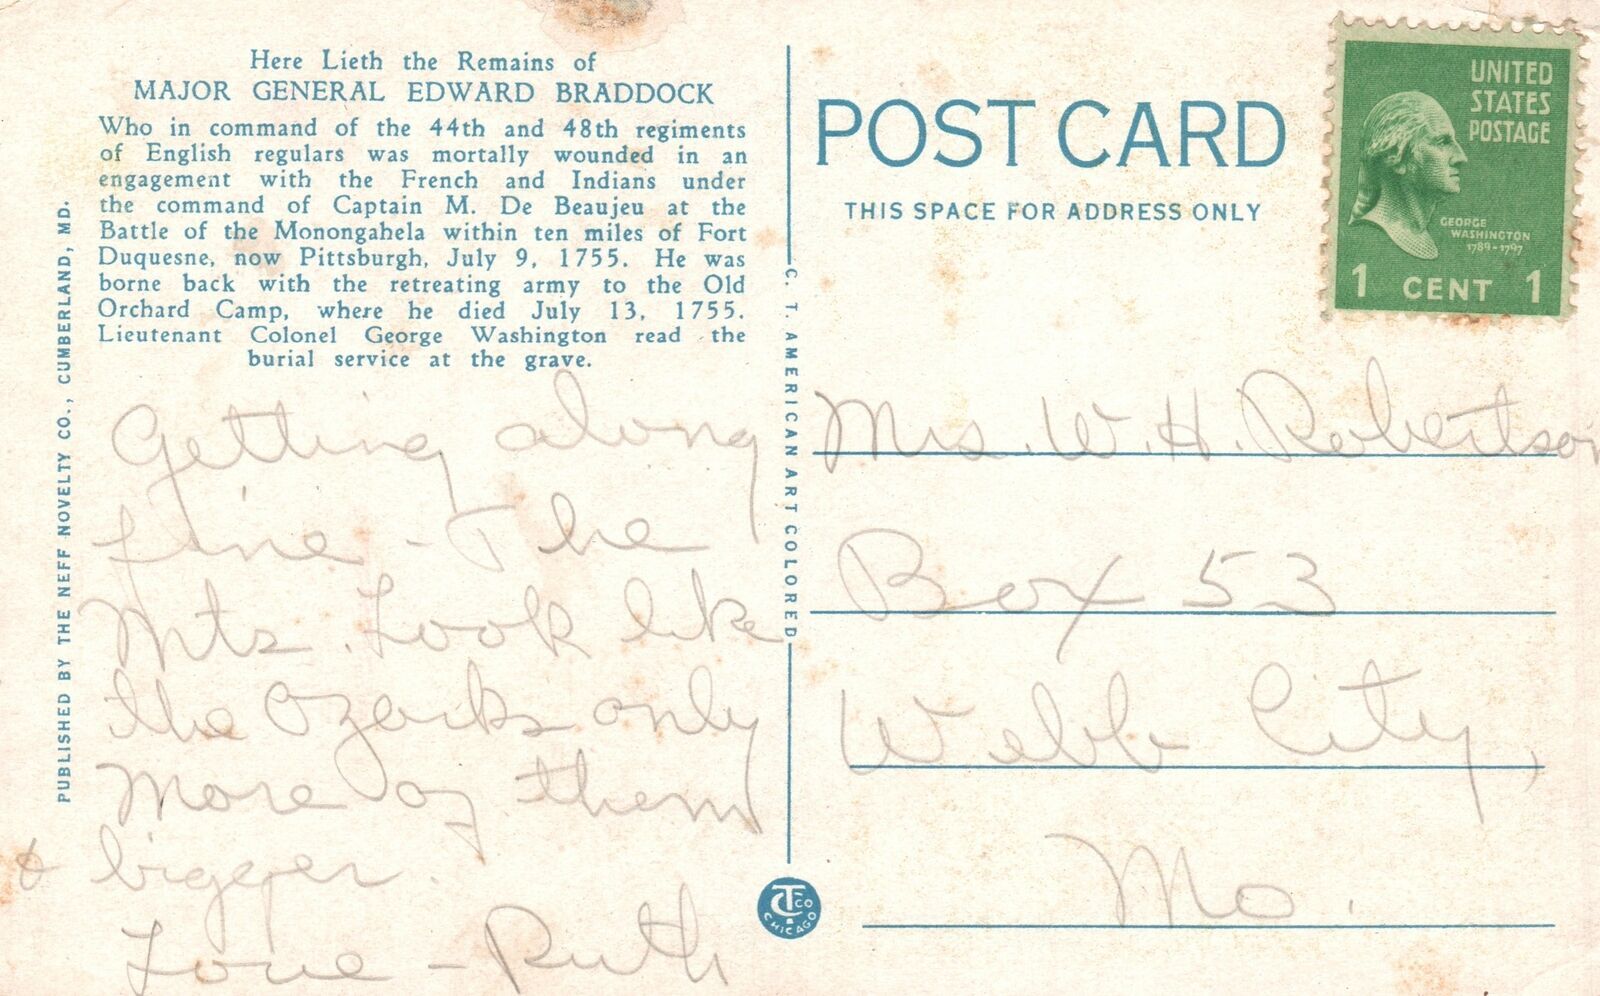 Here Lieth the Remains of
MAJOR GENERAL EDWARD BRADDOCK
Who in command of the 44th and 48th regiments
of English regulars was mortally wounded in an
engagement with the French and Indians under
the command of Captain M. De Beaujeu at the
Battle of the Monongahela within ten miles of Fort
Duquesne, now Pittsburgh, July 9, 1755. He was
borne back with the retreating army to the Old
Orchard Camp, where he died July 13, 1755.
Lieutenant Colonel George Washington read the
burial service at the grave.
PUBLISHED BY THE NEFF NOVELTY CO., CUMBERLAND, MD.
Getting along
fine - The
Mts. Look like
the Ozarks only
More of them
& bigger.
Love - Ruth
C. T. AMERICAN ART COLORED
CT CO
CHICAGO
POST CARD
THIS SPACE FOR ADDRESS ONLY
UNITED
STATES
POSTAGE
GEORGE
WASHINGTON
1789-1797
1 CENT 1
Mrs. W. H. Robertson
Box 53
Webb City,
Mo.